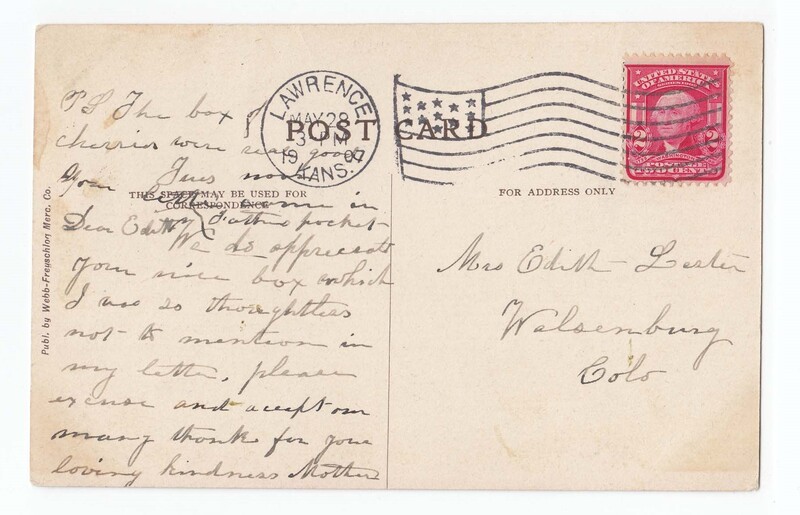 PS The box of
cherries were real good
Tues
Your letter come in
my Fathers pocket-
Dear Edith
We do appreciate
your nice box which
I was so thoughtless
not to mention in
my letter, please
excuse and accept our
many thanks for your
loving kindness Mother
Publ. by Webb-Freyschlag Merc. Co.
THIS SPACE MAY BE USED FOR
CORRESPONDENCE
POST CARD
LAWRENCE
MAY 28
3 PM
1907
KANS.
UNITED STATES
OF AMERICA
2 2
POSTAGE
TWO CENTS
FOR ADDRESS ONLY
Mrs Edith Lester
Walsenburg
Colo